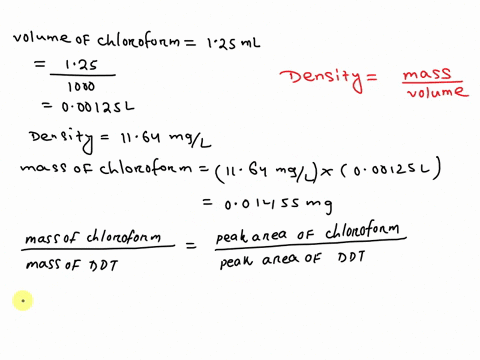 volume of chloroform = 1.25 mL
= 1.25 / 1000
= 0.00125L
Density = mass / volume
Density = 11.64 mg/L
mass of chloroform = (11.64 mg/L) × (0.00125L)
= 0.01455 mg
mass of chloroform / mass of DDT = peak area of chloroform / peak area of DDT